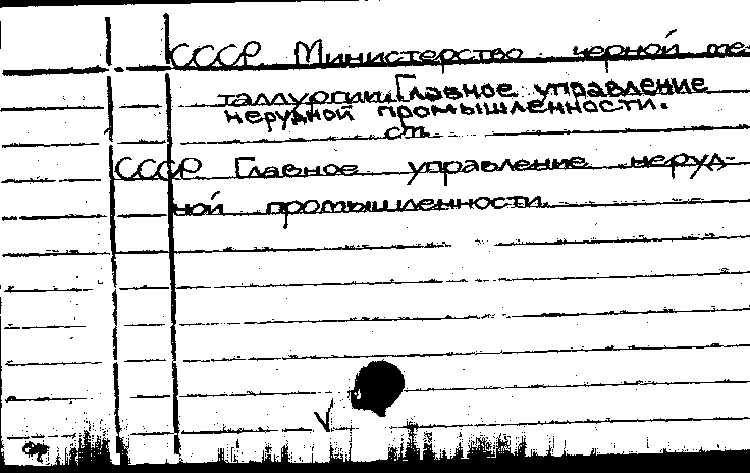 СССР Министерство черной ме-
таллургии. Главное управление
нерудной промышленности.
см.
СССР Главное управление неруд-
ной промышленности.